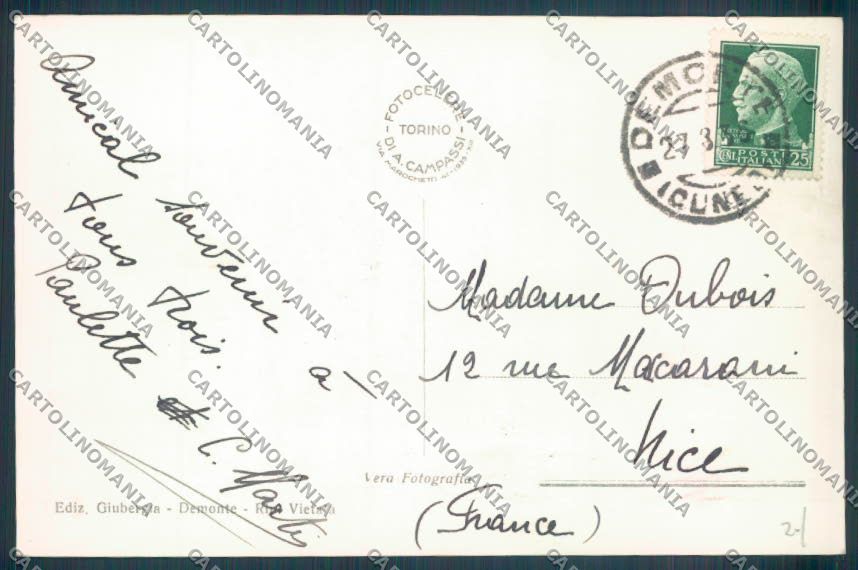 Amical souvenir à
tous trois.
Paulette et C. Martin
FOTOCELERE
TORINO
DI A. CAMPASSI
VIA MAROCHETTI 41 - 1935-XIII
DEMONTE
27 3
(CUNEO)
POSTE
ITALIANE
CENT 25
Madame Dubois
12 rue Macarani
Nice
(France)
Vera Fotografia
Ediz. Giubergia - Demonte - Rip. Vietata
2-/
CARTOLINOMANIA